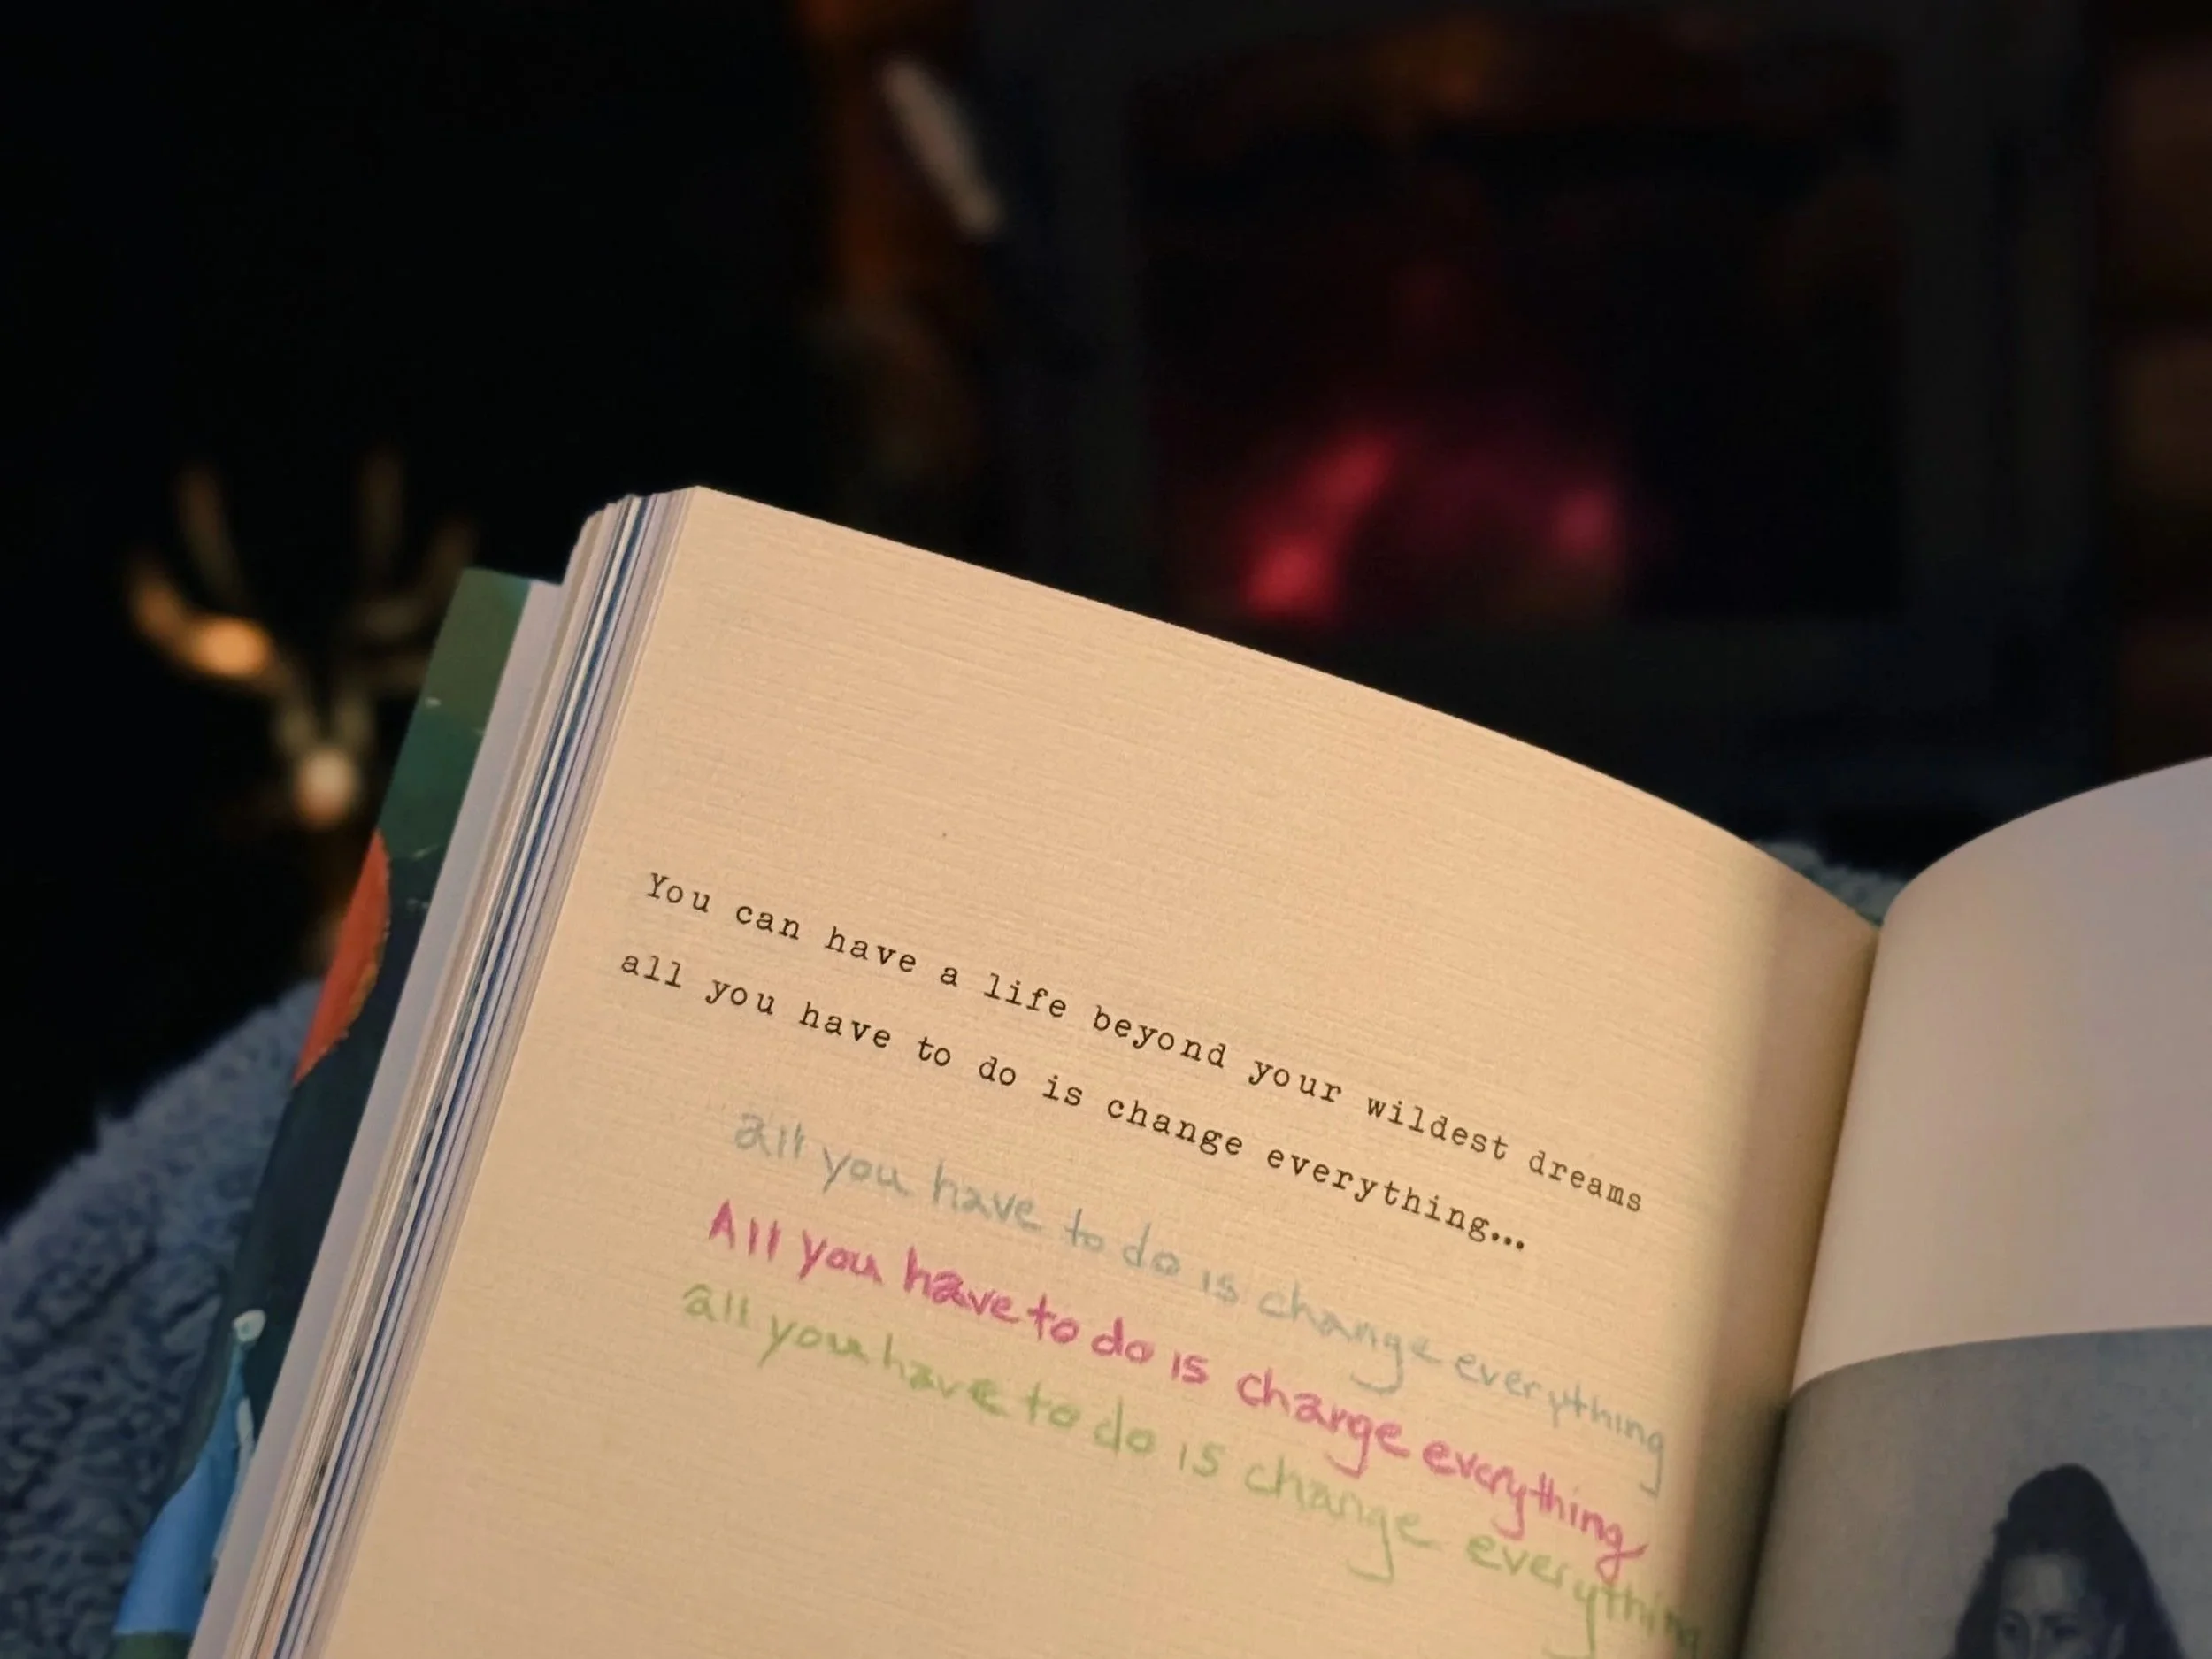 You can have a life beyond your wildest dreams
all you have to do is change everything...
all you have to do is change everything
All you have to do is change everything
all you have to do is change everything